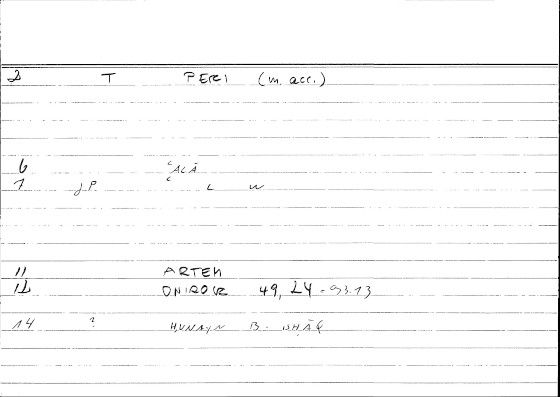 2 T PERI (m. acc.)
6 ʿALĀ
7 J.P. ʿ L W
11 ARTEM
12 ONIROCR 49, 24 - 93.13
14 ? ḤUNAYN B. ISḤĀQ